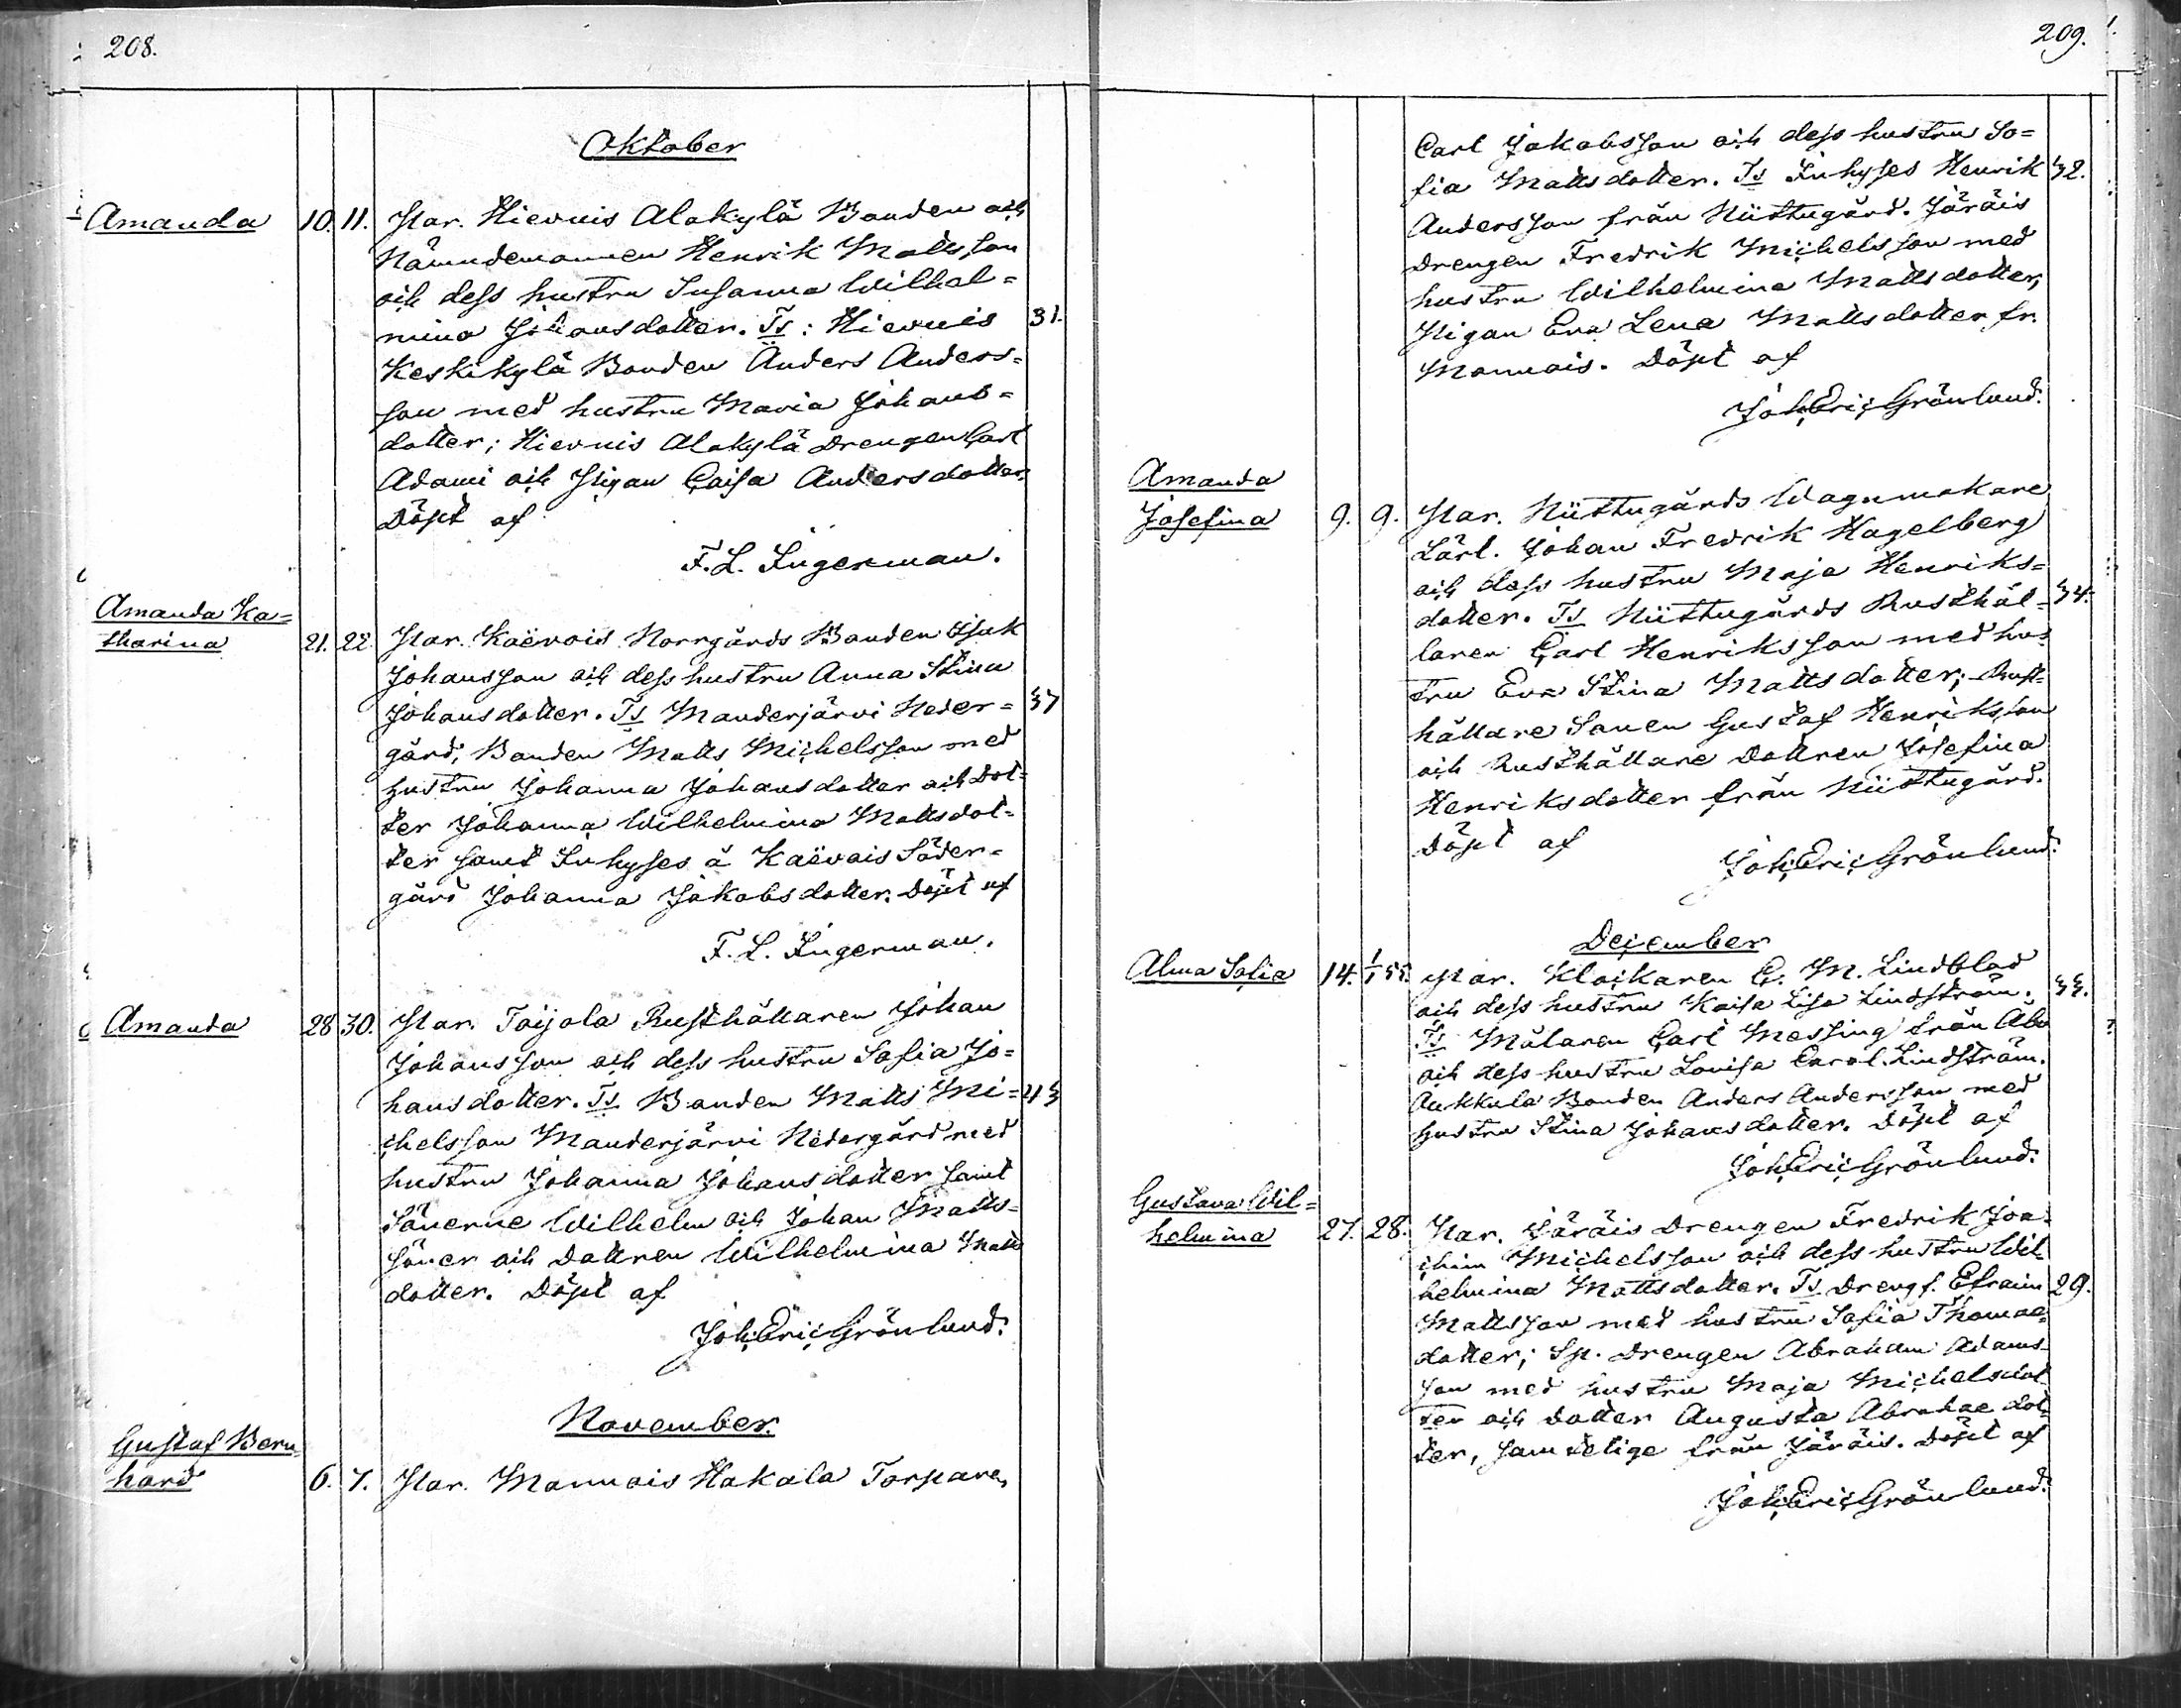 208.
Oktober
Amanda 10. 11. Par. Hievnis Alakylä Bonden och
Nämndemannen Henrik Mattsson
och dess hustru Susanna Wilhel=
mina Johansdotter. Ts: Hievnis 31.
Keskikylä Bonden Anders Anders=
son med hustru Maria Johans=
dotter; Hievnis Alakylä Drengen Carl
Adami och Pigan Caisa Andersdotter.
Döpt af
F. L. Ingerman.
Amanda Ka=
tharina 21. 22. Par. Kaëvois Norrgårds Bonden Isak
Johansson och dess hustru Anna Stina
Johansdotter. Ts Manderjärvi Neder= 37
gård, Bonden Matts Michelsson med
hustru Johanna Johansdotter och Dot=
ter Johanna Wilhelmina Mattsdot=
ter samt Inhyses å Kaëvais Söder=
gård Johanna Jakobsdotter. Döpt af
F. L. Ingerman.
Amanda 28 30. Par. Taijola Rusthållaren Johan
Johansson och dess hustru Sofia Jo=
hansdotter. Ts Bonden Matts Mi= 43
chelsson Manderjärvi Nedergård med
hustru Johanna Johansdotter samt
Sönerne Wilhelm och Johan Matts=
söner och Dottren Wilhelmina Matts
dotter. Döpt af
Joh. Eric Grönlund.
November.
Gustaf Bern
hard 6. 7. Par. Mannais Hakala Torparen
209.
Carl Jakobsson och dess hustru So=
fia Mattsdotter. Ts Inhyses Henrik 32.
Andersson från Niittugård. Järäis
Drengen Fredrik Michelsson med
hustru Wilhelmina Mattsdotter,
Pigan Eva Lena Mattsdotter fr.
Mannais. Döpt af
Joh. Eric Grönlund.
Amanda
Josefina 9. 9. Par. Niittugårds Wagnmakare
Lärl. Johan Fredrik Hagelberg
och dess hustru Maja Henriks=
dotter. Ts Niittugårds Rusthål= 34.
laren Carl Henriksson med hus
tru Eva Stina Mattsdotter; Rust=
hållare Sonen Gustaf Henriksson
och Rusthållare Dottren Josefina
Henriksdotter från Niittugård.
Döpt af
Joh. Eric Grönlund.
December
Alma Sofia 14. 1/1 55. Par. Klockaren C. M. Lindblad
och dess hustru Kaisa Lisa Lindström. 33.
Ts Målaren Carl Messing från Åbo
och dess hustru Lovisa Carol. Lindström.
Aukkula Bonden Anders Andersson med
hustru Stina Johansdotter. Döpt af
Joh. Eric Grönlund.
Gustava Wil=
helmina 27. 28. Par. Järäis Drengen Fredrik Joa=
chim Michelsson och dess hustru Wil
helmina Mattsdotter. Ts. Dreng f. Efraim 29.
Mattsson med hustru Sofia Thomae=
dotter; Sp. Drengen Abraham Adams
son med hustru Maja Michelsdot
ter och Dotter Augusta Abrahae dot=
ter, samtelige från Järäis. Döpt af
Joh. Eric Grönlund.